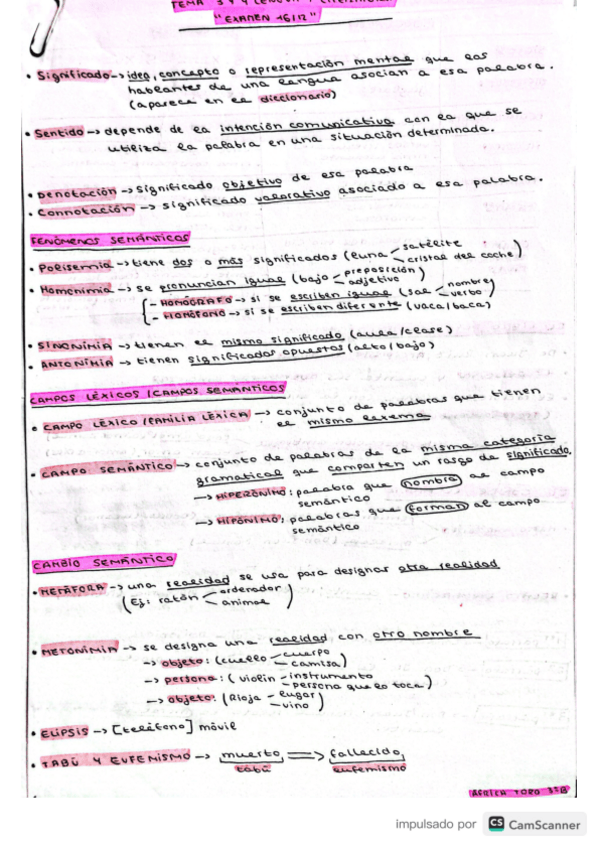 TEMA 3 Y 4 LENGUA Y
"EXAMEN 16/12"
• Significado → idea, concepto o representación mental que los
hablantes de una lengua asocian a esa palabra.
(aparece en el diccionario)
• Sentido → depende de la intención comunicativa con la que se
utiliza la palabra en una situación determinada.
• Denotación → significado objetivo de esa palabra
• Connotación → significado valorativo asociado a esa palabra.
FENÓMENOS SEMÁNTICOS
• Polisemia → tiene dos o más significados (luna satélite
cristal del coche)
• Homonimia → se pronuncian igual (bajo preposición
adjetivo)
- HOMÓGRAFO → si se escriben igual (sal nombre
verbo)
- HOMÓFONO → si se escriben diferente (vaca/baca)
• SINONIMIA → tienen el mismo significado (aula/clase)
• ANTONIMIA → tienen significados opuestos (alto/bajo)
CAMPOS LÉXICOS/CAMPOS SEMÁNTICOS
• CAMPO LÉXICO/FAMILIA LÉXICA → conjunto de palabras que tienen
el mismo lexema
• CAMPO SEMÁNTICO → conjunto de palabras de la misma categoría
gramatical que comparten un rasgo de significado.
→ HIPERÓNIMO: palabra que nombra al campo
semántico
→ HIPÓNIMO: palabras que forman al campo
semántico
CAMBIO SEMÁNTICO
• METÁFORA → una realidad se usa para designar otra realidad
(Ej: ratón ordenador
animal)
• METONIMIA → se designa una realidad con otro nombre
→ objeto: (cuello cuerpo
camisa)
→ persona: (violin instrumento
persona que lo toca)
→ objeto: (Rioja lugar
vino)
• ELIPSIS → [teléfono] móvil
• TABÚ Y EUFEMISMO → muerto ⇒ fallecido
tabú eufemismo
AFRICA TORO 3ºB
impulsado por CS CamScanner